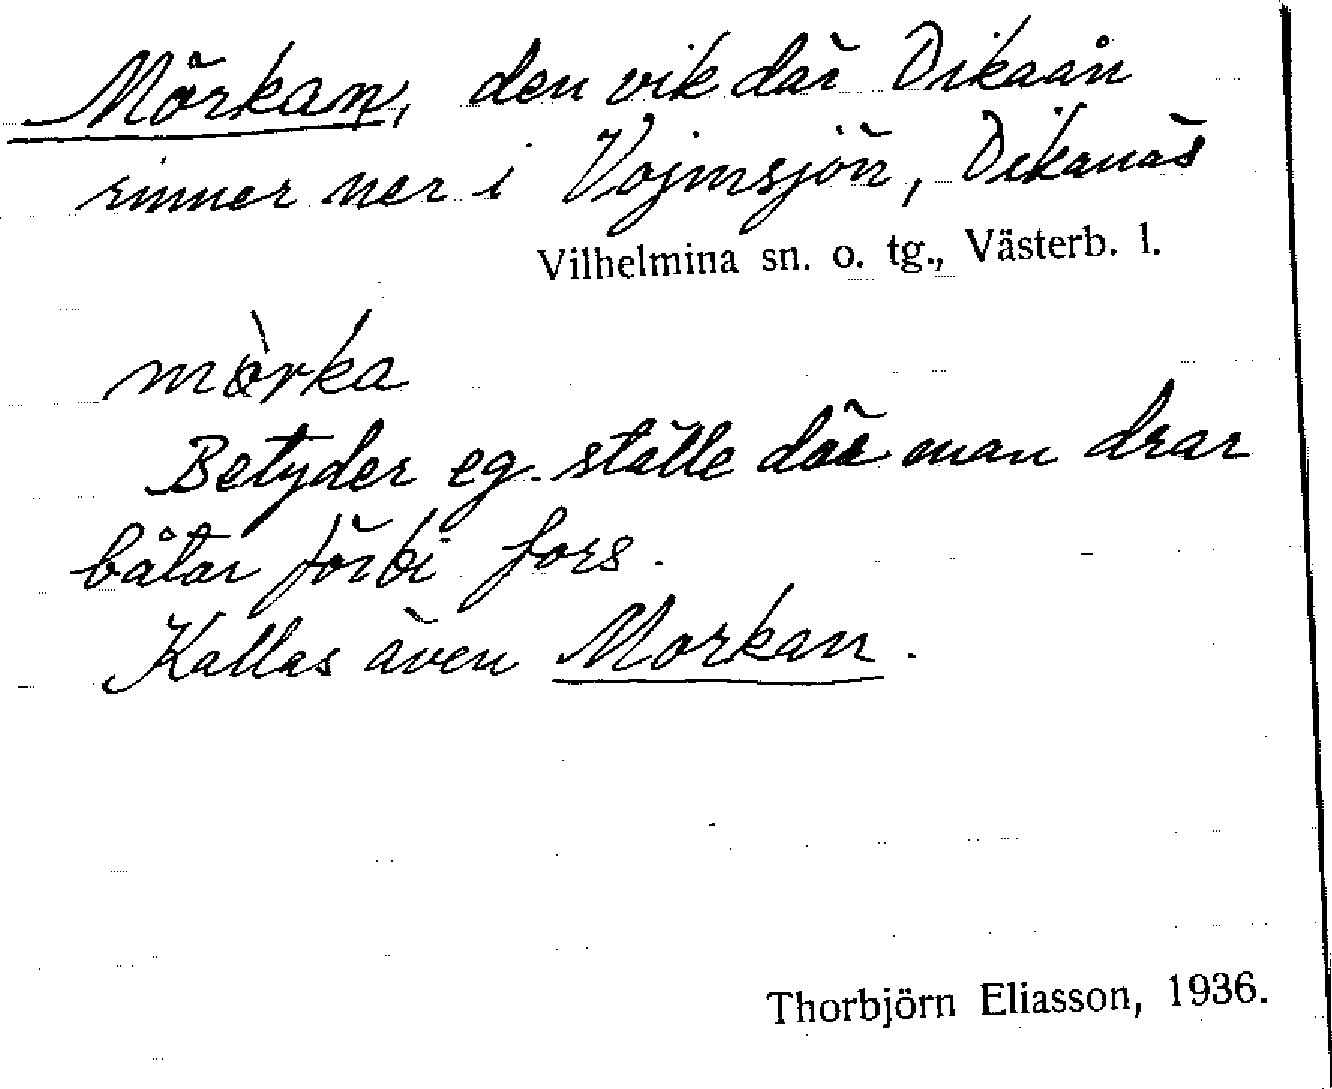 Mörkan, den vik där Dikaån
rinner ner i Vojmsjön, Dikanäs
Vilhelmina sn. o. tg., Västerb. l.
mö̀rka
Betyder eg. ställe där man drar
båtar förbi fors.
Kallas även Morkan.
Thorbjörn Eliasson, 1936.